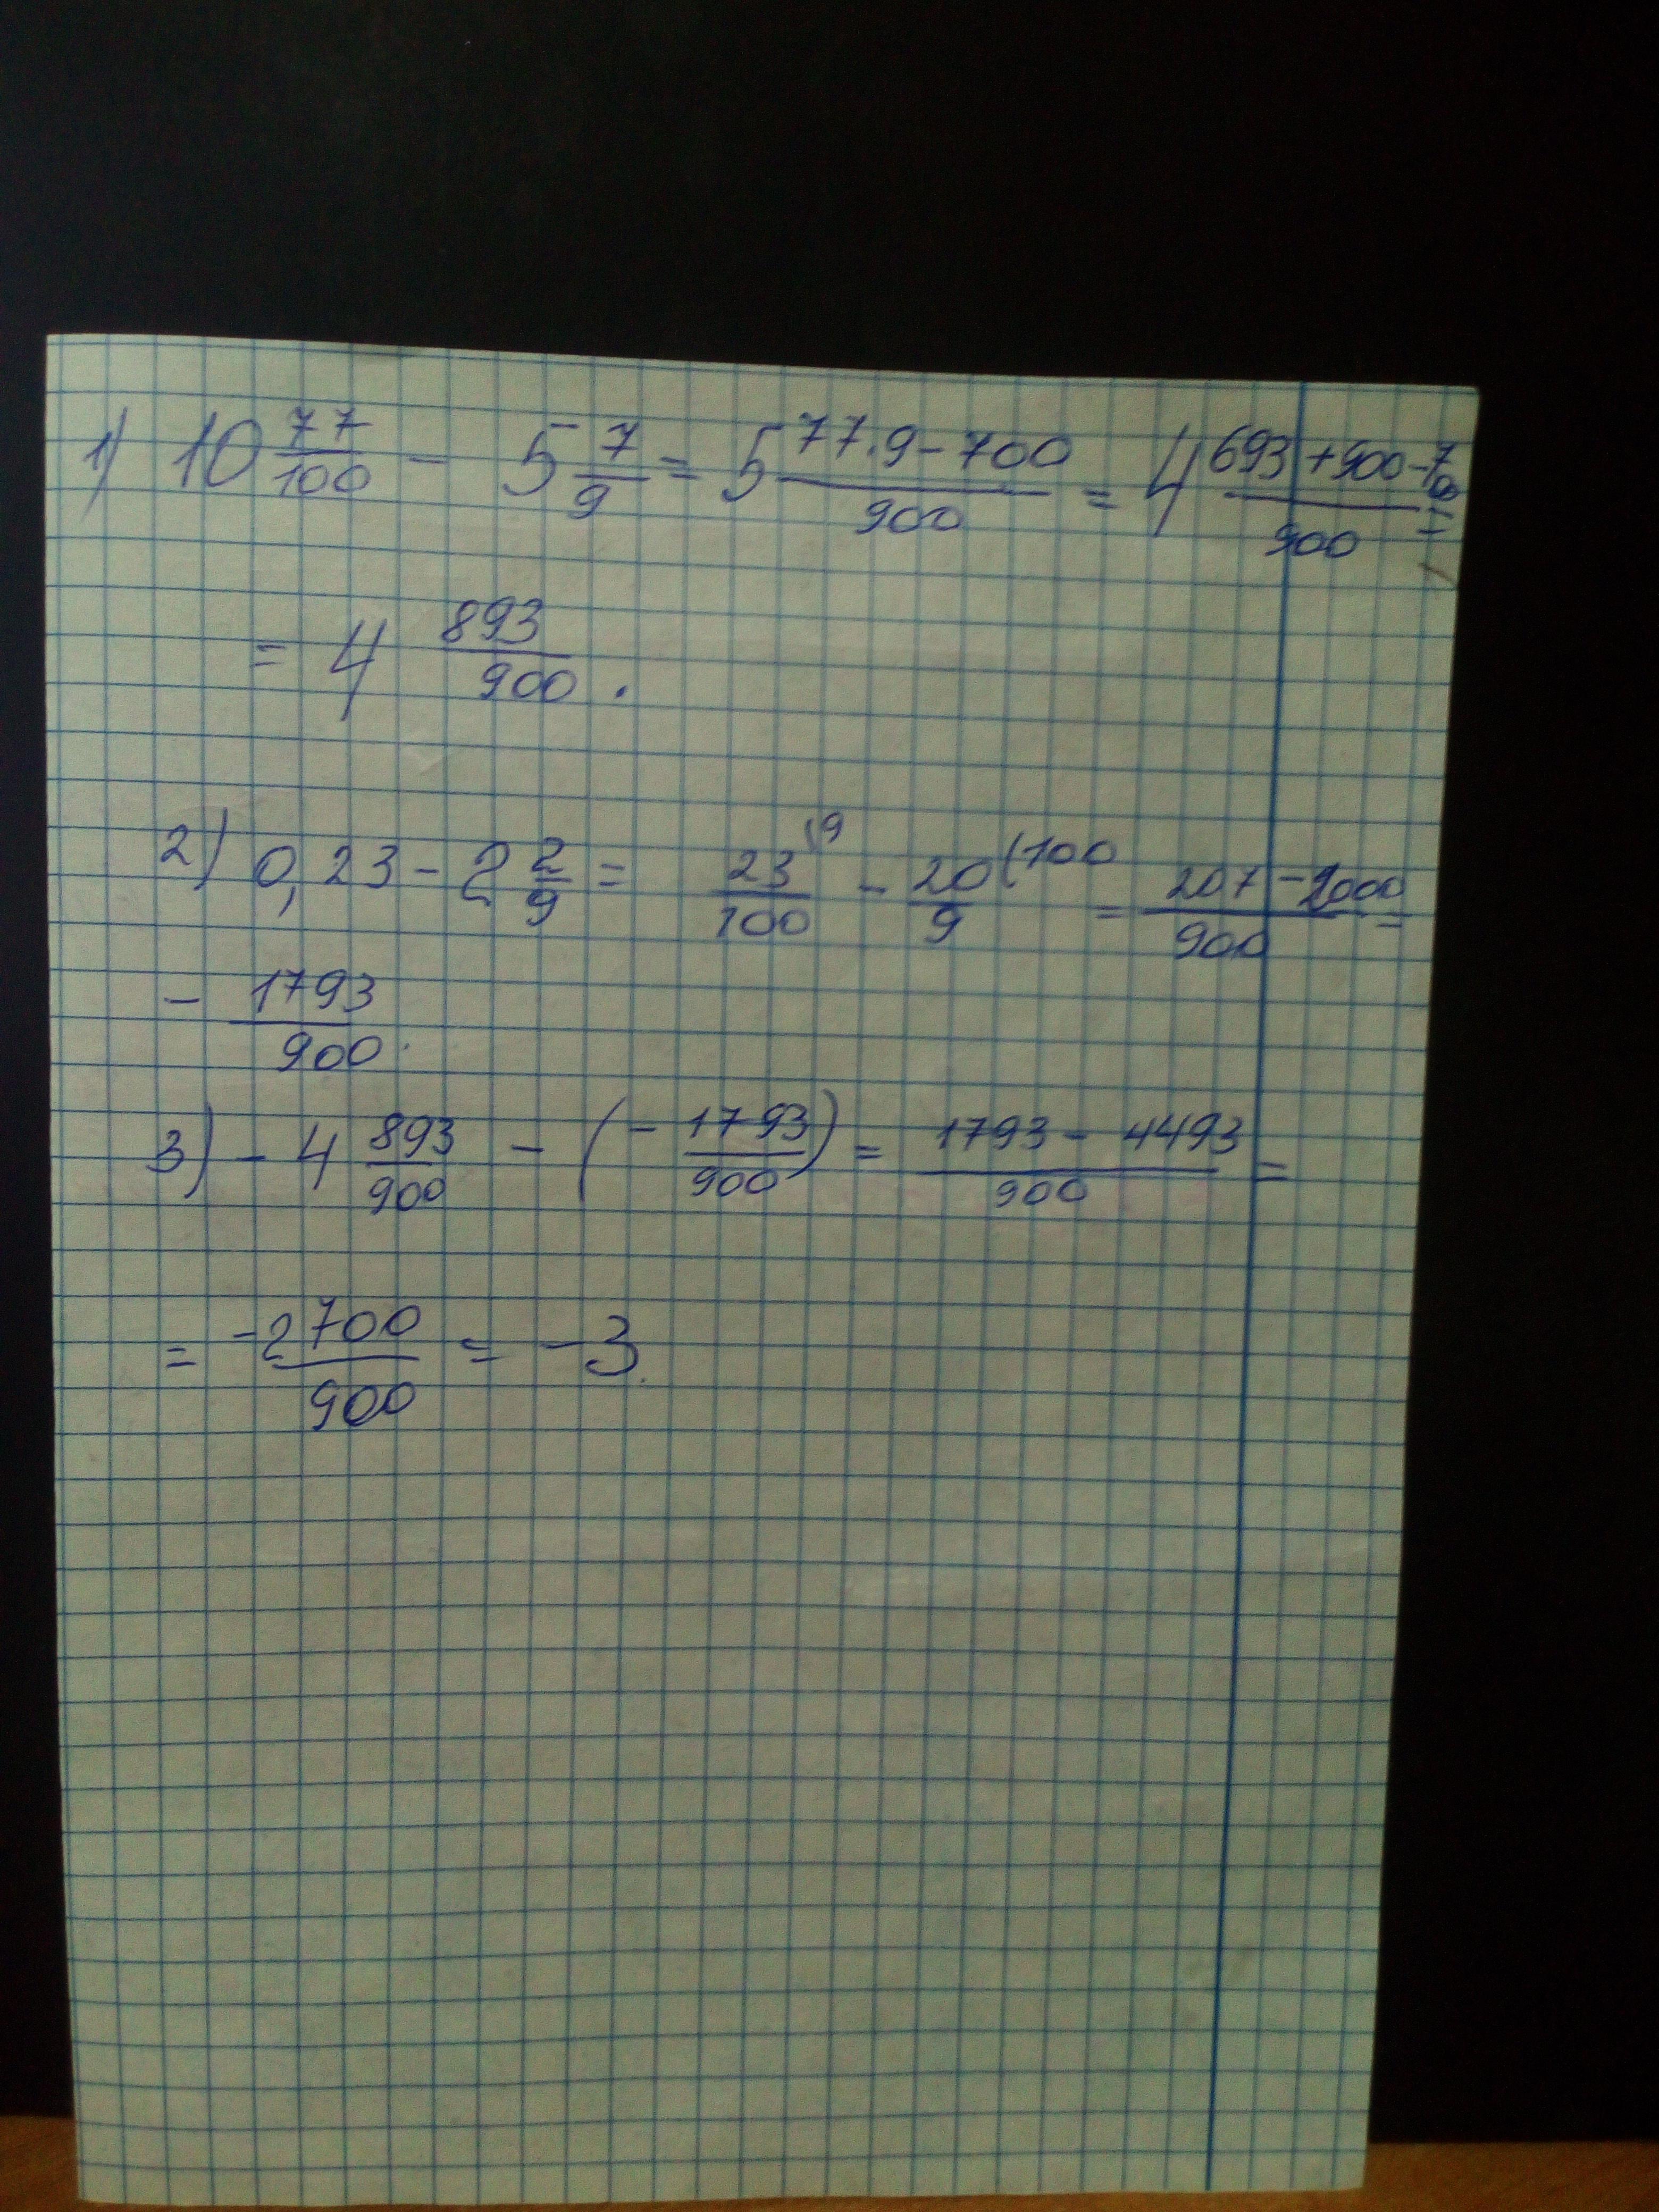 1) 10 77/100 - 5 7/9 = 5 (77·9-700)/900 = 4 (693+900-700)/900 =
= 4 893/900.
2) 0,23 - 2 2/9 = 23/100 (9 - 20/9 (100 = (207-2000)/900 =
- 1793/900.
3) - 4 893/900 - (- 1793/900) = (1793 - 4493)/900 =
= -2700/900 = -3.